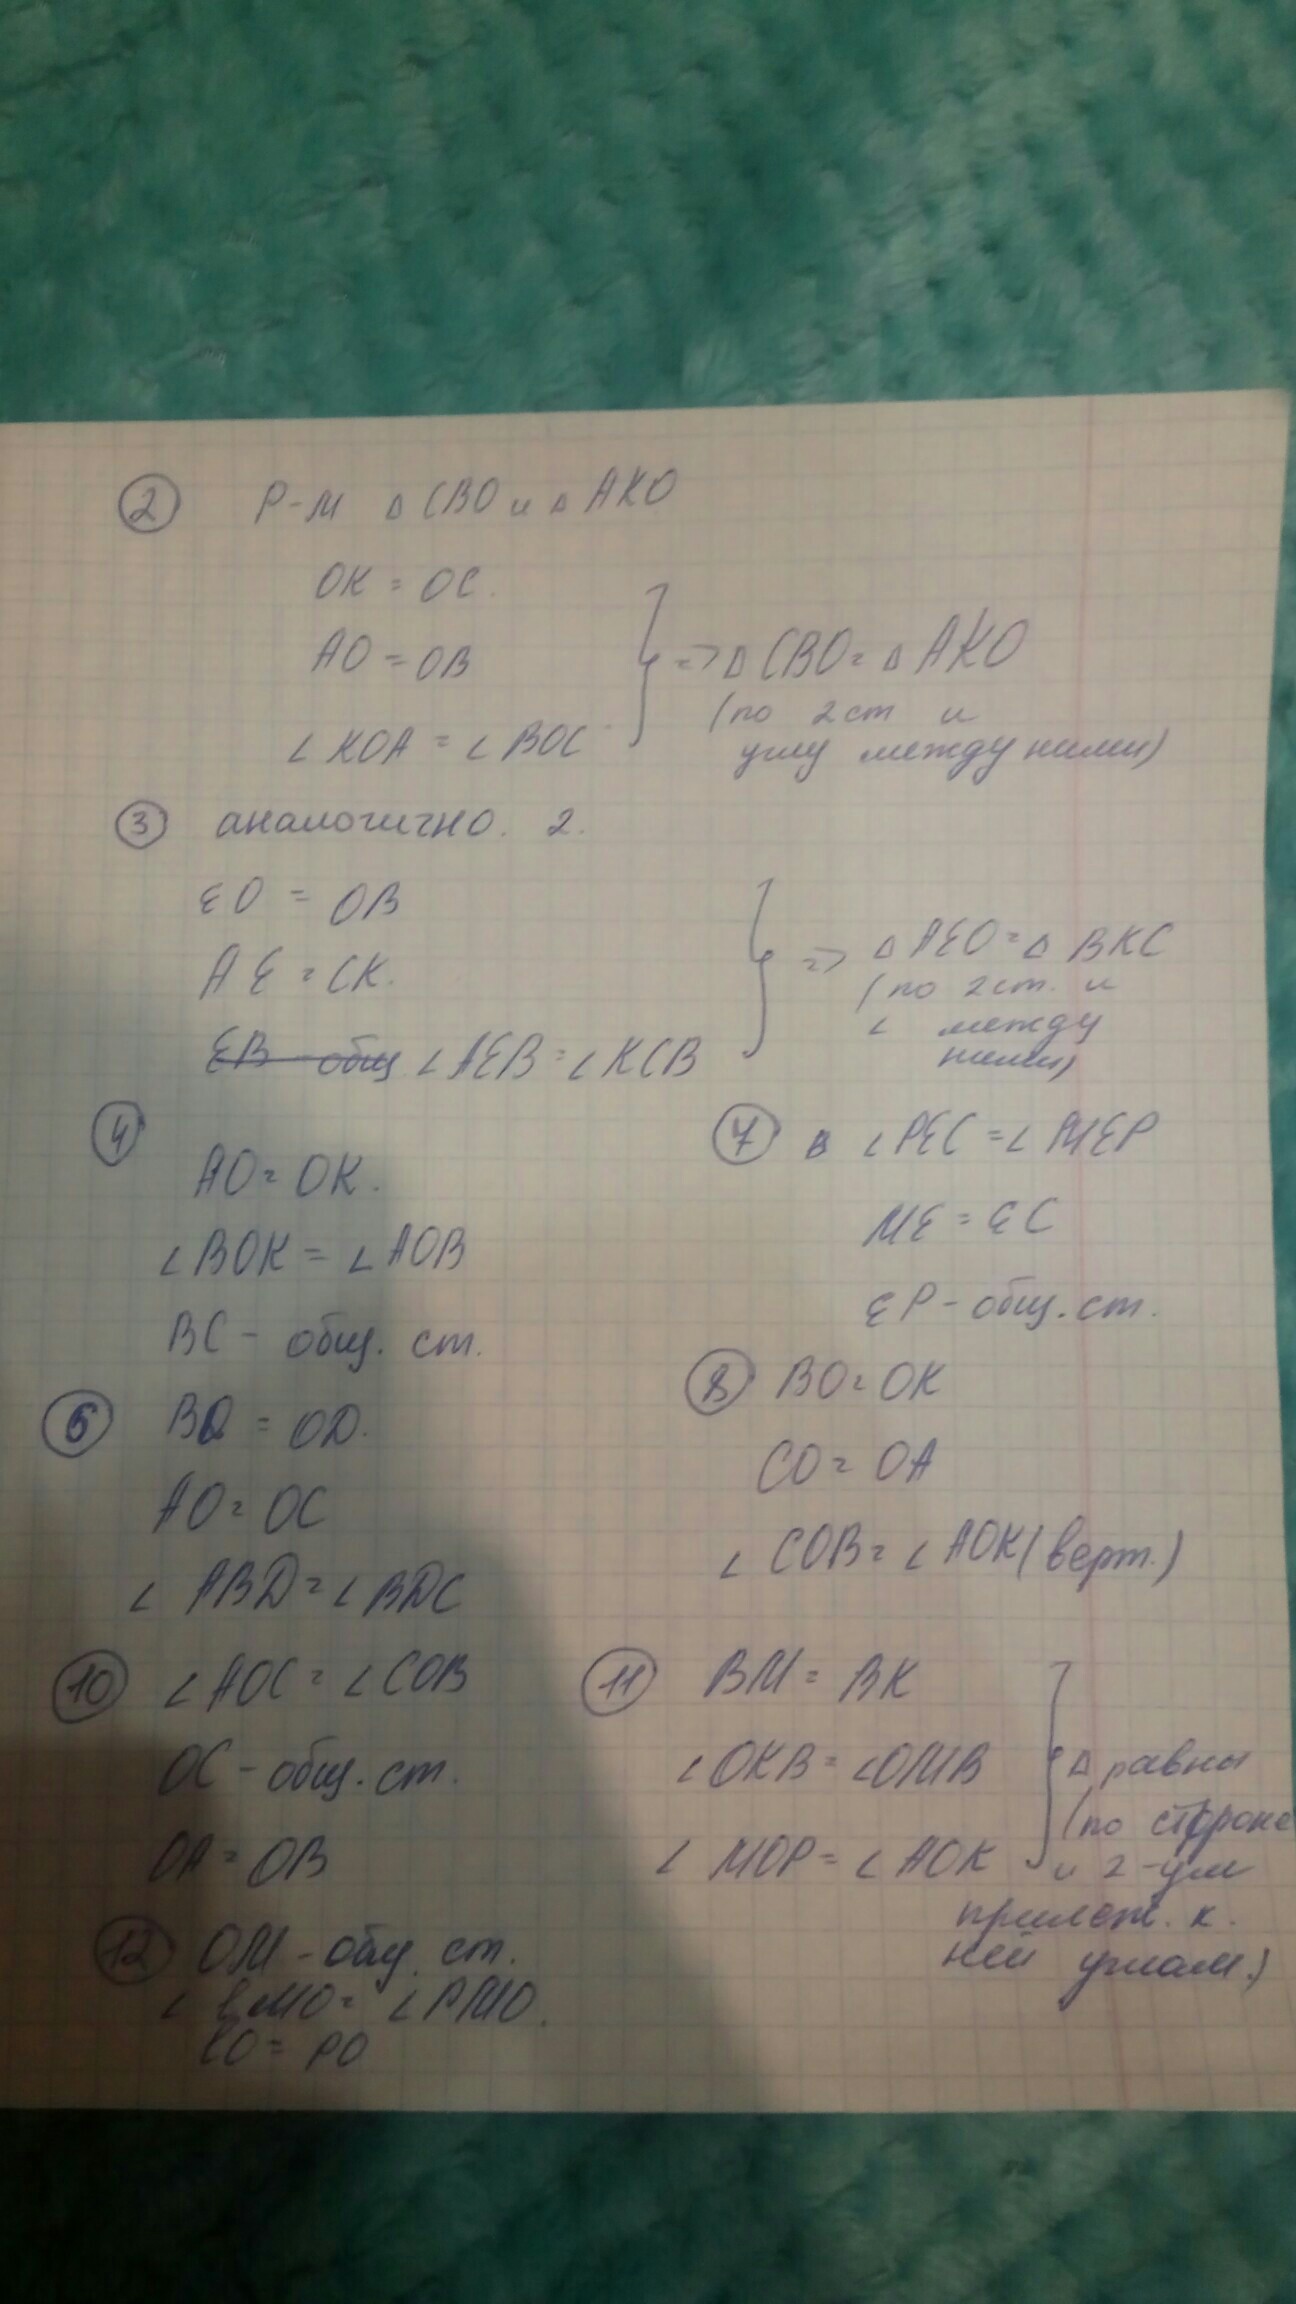 2 Р-м △ CBO и △ AKO
OK = OC.
AO = OB
∠ KOA = ∠ BOC
} => △ CBO = △ AKO
(по 2 ст и
углу между ними)
3 аналогично. 2.
EO = OB
AE = CK.
EB - общ ∠ AEB = ∠ KCB
} => △ AEO = △ BKC
(по 2 ст. и
∠ между
ними)
4
AO = OK.
∠ BOK = ∠ AOB
BC - общ. ст.
6 BO = OD.
AO = OC
∠ ABD = ∠ BDC
7 в ∠ PEC = ∠ MEP
ME = EC
EP - общ. ст.
8 BO = OK
CO = OA
∠ COB = ∠ AOK (верт.)
10 ∠ AOC = ∠ COB
OC - общ. ст.
OA = OB
11 BM = BK
∠ OKB = ∠ OMB
∠ MOP = ∠ AOK
} △ равны
(по стороне
и 2-ум
прилеж. к.
ней углам.)
12 OM - общ. ст.
∠ MO = ∠ PMO.
O = PO